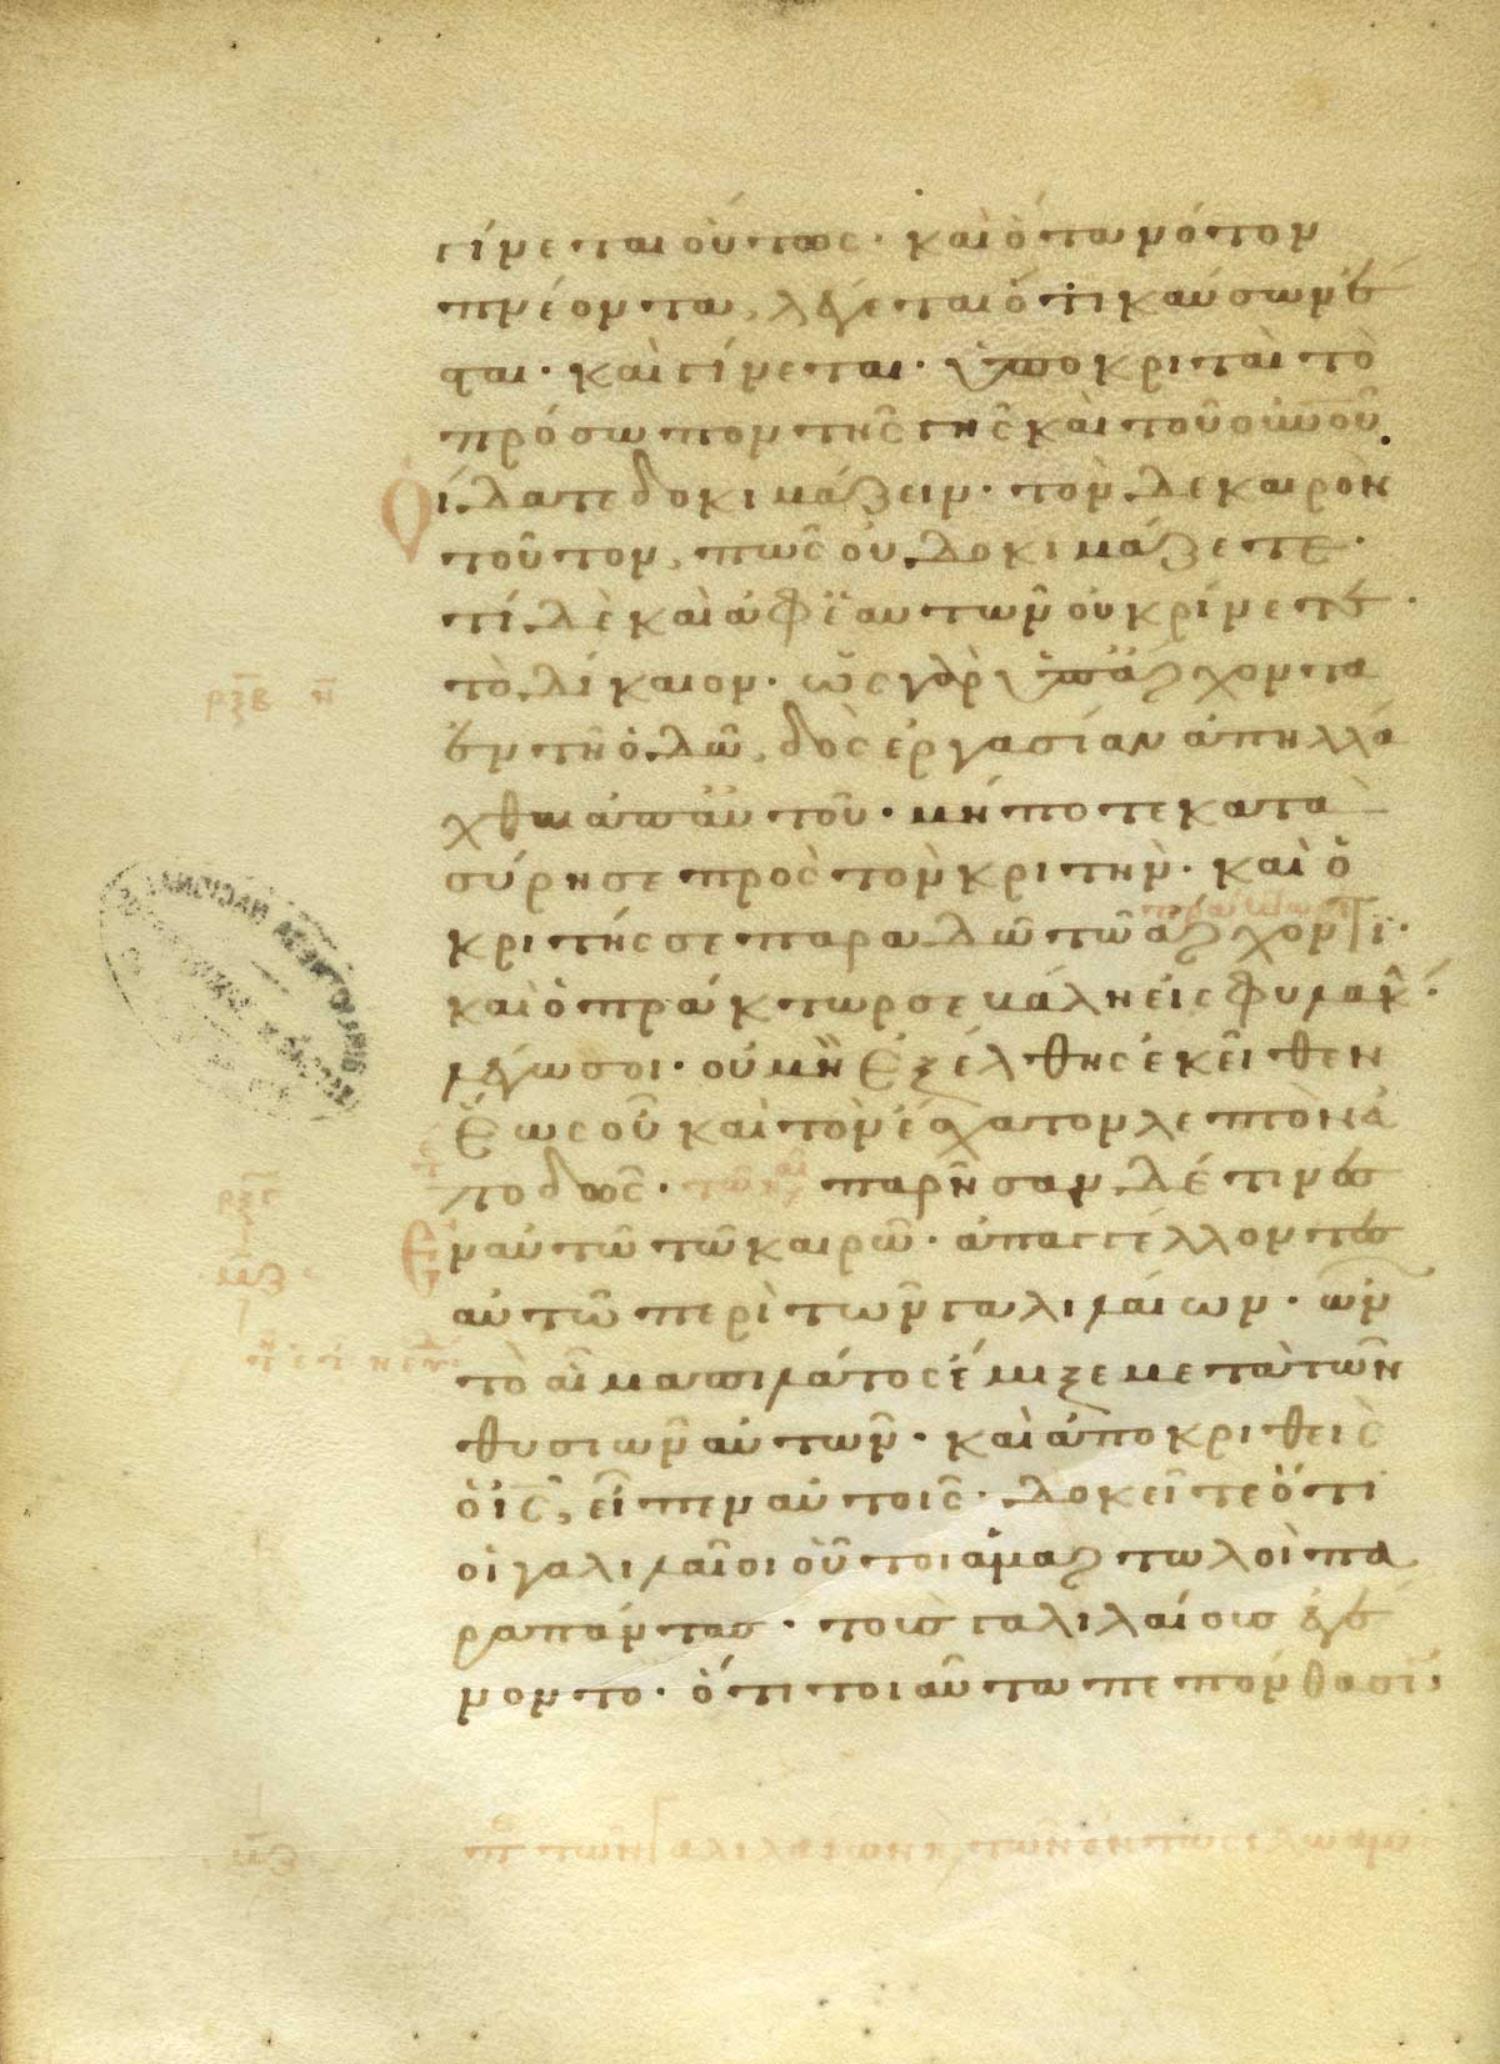 γίνεται οὕτως· καὶ ὅταν νότον
πνέοντα, λέγεται ὅτι καύσων ἔ
σται· καὶ γίνεται· ὑποκριταὶ τὸ
πρόσωπον τῆς γῆς καὶ τοῦ οὐνοῦ
οἴδατε δοκιμάζειν· τὸν δὲ καιρὸν
τοῦτον, πῶς οὐ δοκιμάζετε·
τί δὲ καὶ ἀφ' ἑαυτῶν οὐ κρίνετε
τὸ δίκαιον· ὡς γὰρ ὑπάρχοντα
ἐν τῇ ὁδῶ, δὸς ἐργασίαν ἀπηλλά
χθαι ἀπ' αὐτοῦ· μήποτε κατα
σύρη σε πρὸς τὸν κριτήν· καὶ ὁ
κριτής σε παραδῶ τῶ ἄρχοντι·
καὶ ὁ πράκτωρ σε βάλη εἰς φυλακήν·
λέγω σοι· οὐ μὴ ἐξέλθης ἐκεῖθεν
ἕως οὗ καὶ τὸν ἔσχατον λεπτὸν ἀ
ποδῶς· παρῆσαν δέ τινες
ρξγ
ἐν αὐτῶ τῶ καιρῶ· ἀπαγγέλλοντες
αὐτῶ περὶ τῶν γαλιλαίων· ὧν
τὸ αἷμα πιλάτος ἔμιξε μετὰ τῶν
θυσιῶν αὐτῶν· καὶ ἀποκριθεὶς
ὁ ἰς, εἶπεν αὐτοῖς· δοκεῖτε ὅτι
οἱ γαλιλαῖοι οὗτοι ἁμαρτωλοὶ πα
ρὰ πάντας· τοὺς γαλιλαίους ἐγέ
νοντο· ὅτι τοιαῦτα πεπόνθασιν